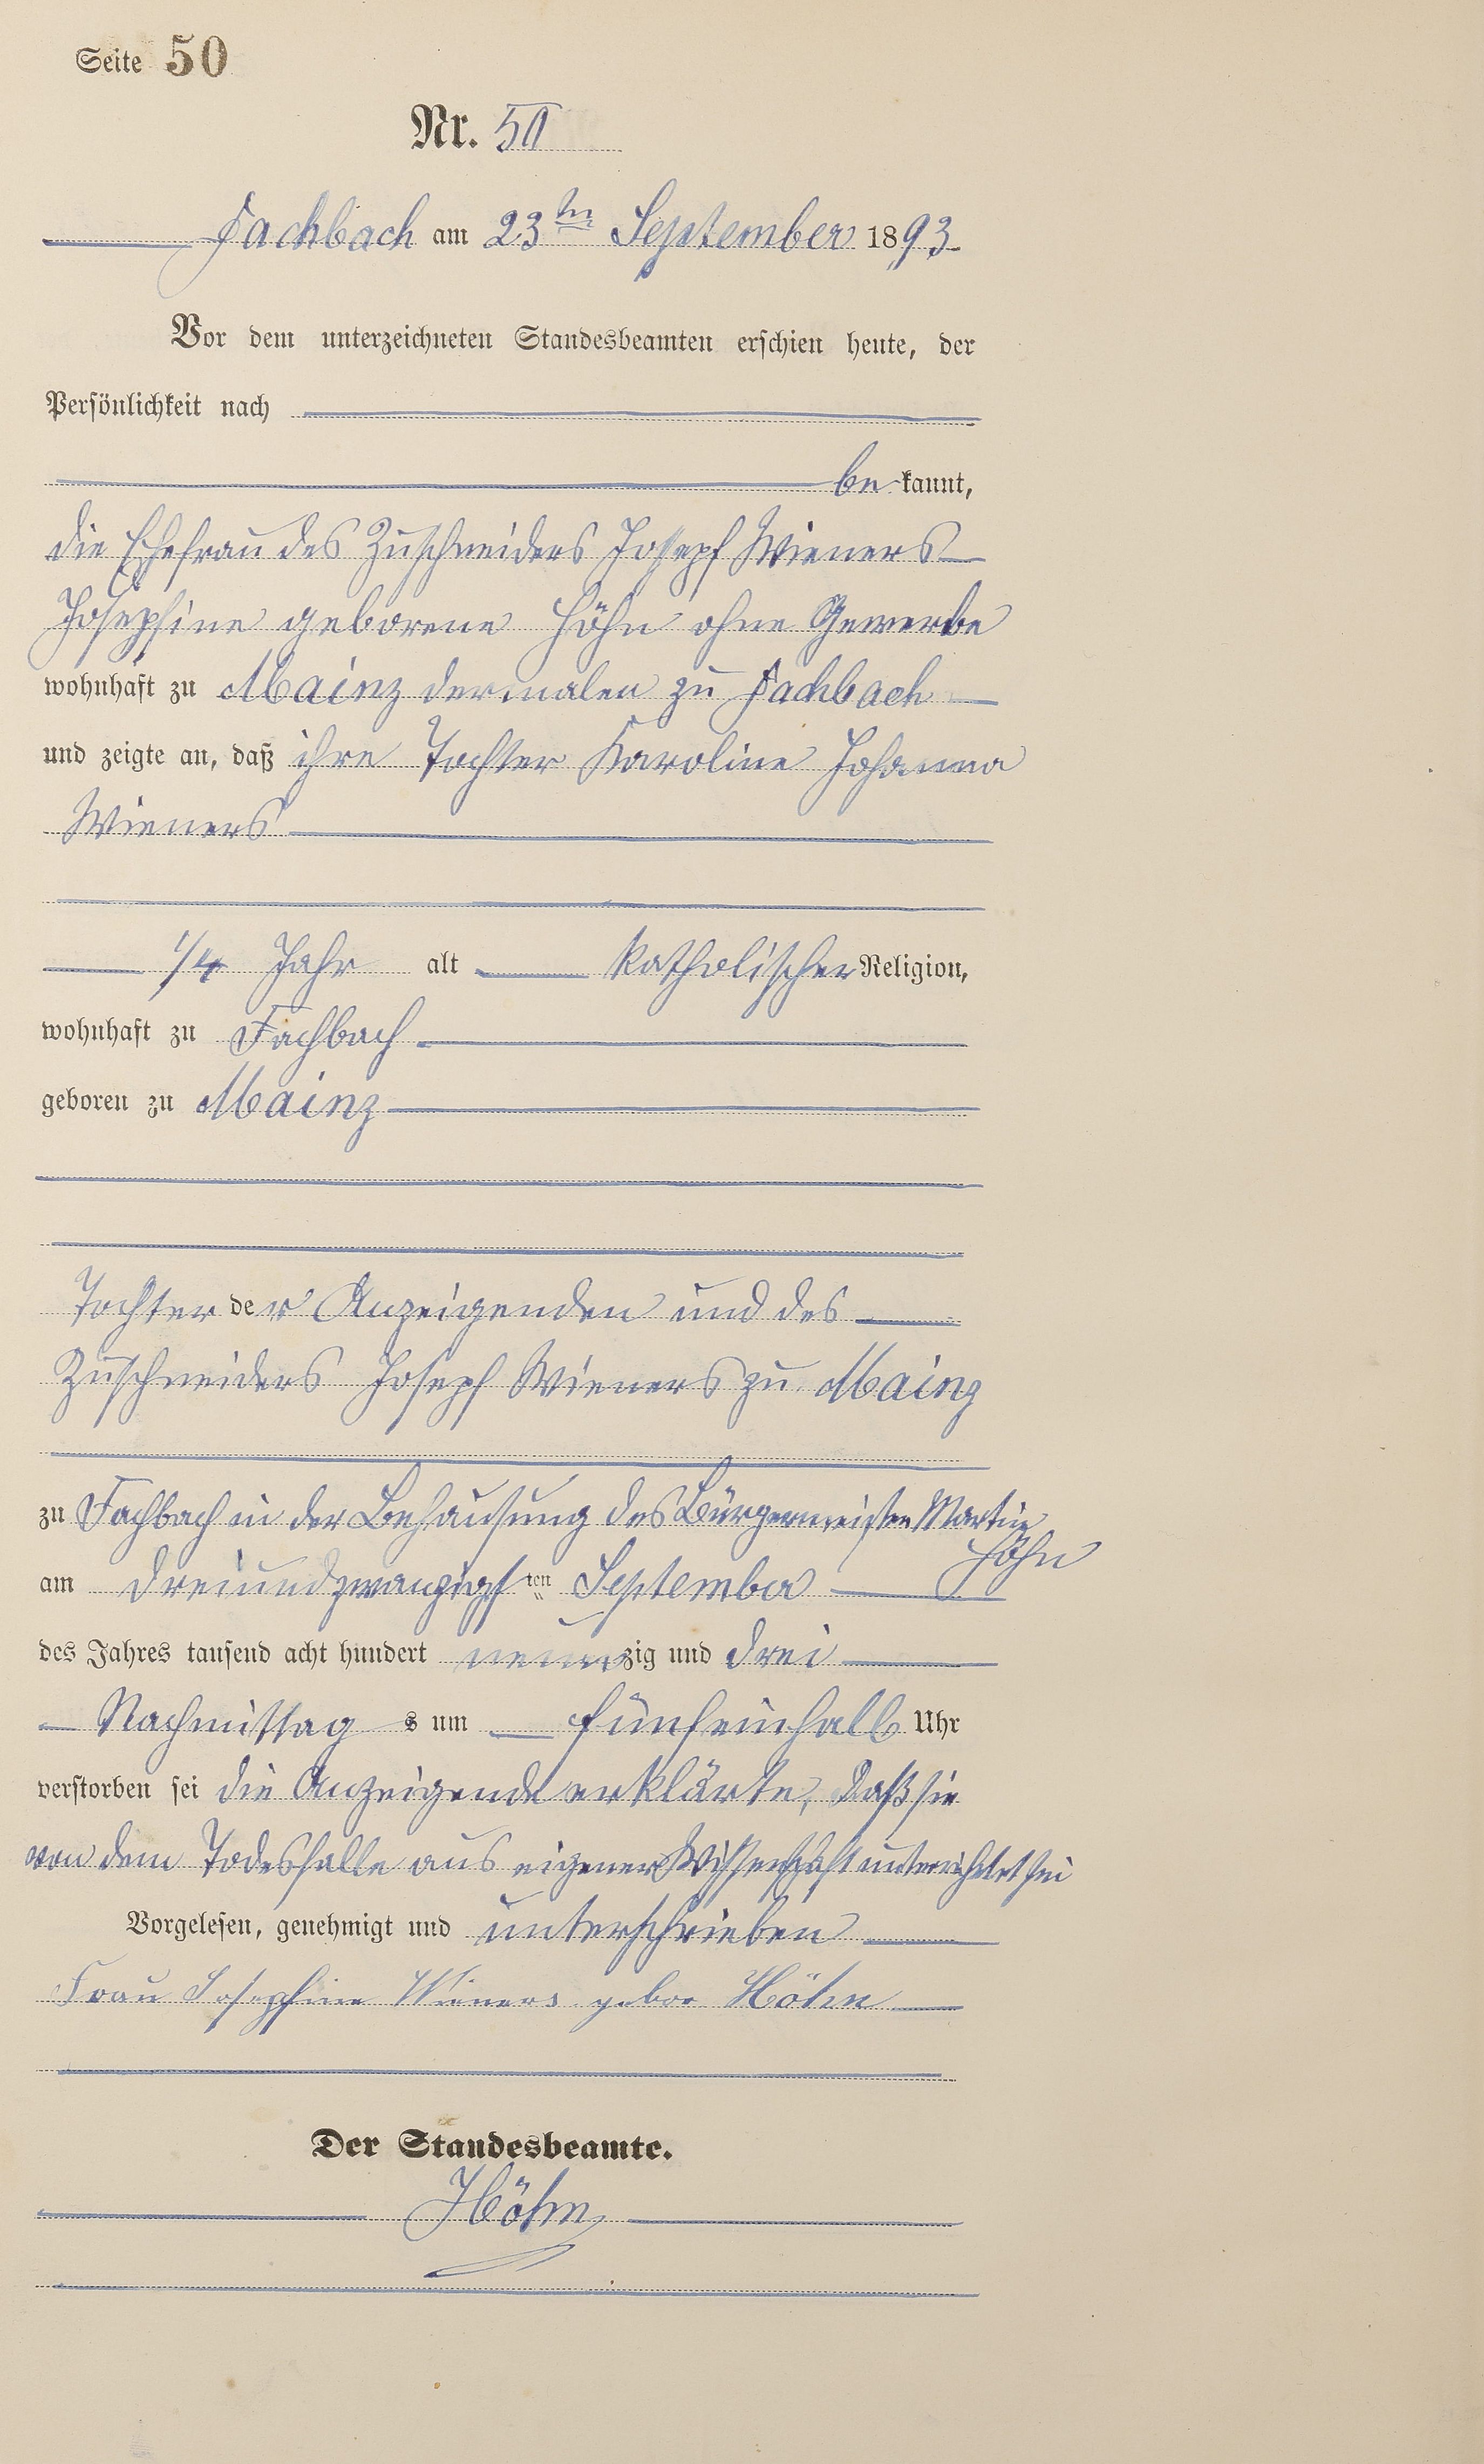 Seite 50
Nr. 50
Fachbach am 23ten September 1893
Vor dem unterzeichneten Standesbeamten erschien heute, der
Persönlichkeit nach
be kannt,
die Ehefrau des Zuschneiders Joseph Wieners
Josephine geborene Höhn ohne Gewerbe
wohnhaft zu Mainz dermalen zu Fachbach
und zeigte an, daß ihre Tochter Karoline Johanna
Wieners
1/4 Jahr alt katholischer Religion,
wohnhaft zu Fachbach
geboren zu Mainz
Tochter der Anzeigenden und des
Zuschneiders Joseph Wieners zu Mainz
zu Fachbach in der Behausung des Bürgermeisters Martin
Höhn
am dreiundzwanzigsten September
des Jahres tausend acht hundert neunzig und drei
Nachmittag s um fünfeinhalb Uhr
verstorben sei die Anzeigende erklärte, daß sie
von dem Todesfalle aus eigener Wissenschaft unterrichtet sei
Vorgelesen, genehmigt und unterschrieben
Frau Josephine Wieners gebor Höhn
Der Standesbeamte.
Höhn